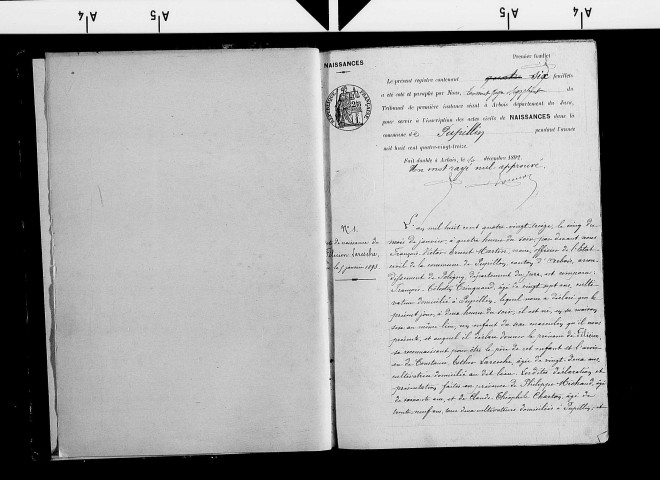 A|4
A|5
A|5
A|4
NAISSANCES
Premier feuillet
Le présent registre contenant quatre six feuillets
a été coté et paraphé par Nous, juge suppléant du
Tribunal de première instance séant à Arbois département du Jura,
pour servir à l'inscription des actes civils de NAISSANCES dans la
commune de Pupillin pendant l'année
mil huit cent quatre-vingt-treize.
Fait double à Arbois, le décembre 1892
Un mot rayé nul approuvé.
RÉPUBLIQUE FRANÇAISE
N° 1.
de naissance de
Laresche
le 5 janvier 1893
L'an mil huit cent quatre vingt treize, le cinq du
mois de janvier, à quatre heures du soir, par devant nous
François Victor Ernest Martin, maire, officier de l'État
civil de la commune de Pupillin, canton d'Arbois, arron
dissement de Poligny, département du Jura, est comparu
François Célestin, âgé de vingt sept ans, culti
vateur domicilié à Pupillin, lequel nous a déclaré que le
présent jour, à deux heures du soir, il est né, en sa maison
sise au même lieu, un enfant du sexe masculin qu'il nous
présente, et auquel il déclare donner le prénom de
se reconnaissant pour être le père de cet enfant et l'avoir
eu de Constance Esther Laresche, âgée de vingt deux ans,
cultivatrice domiciliée au dit lieu. Lesdites déclaration et
présentation faites en présence de Philippe Michaud, âgé
de soixante ans, et de Claude Théophile Charton, âgé de
trente neuf ans, tous deux cultivateurs domiciliés à Pupillin, et